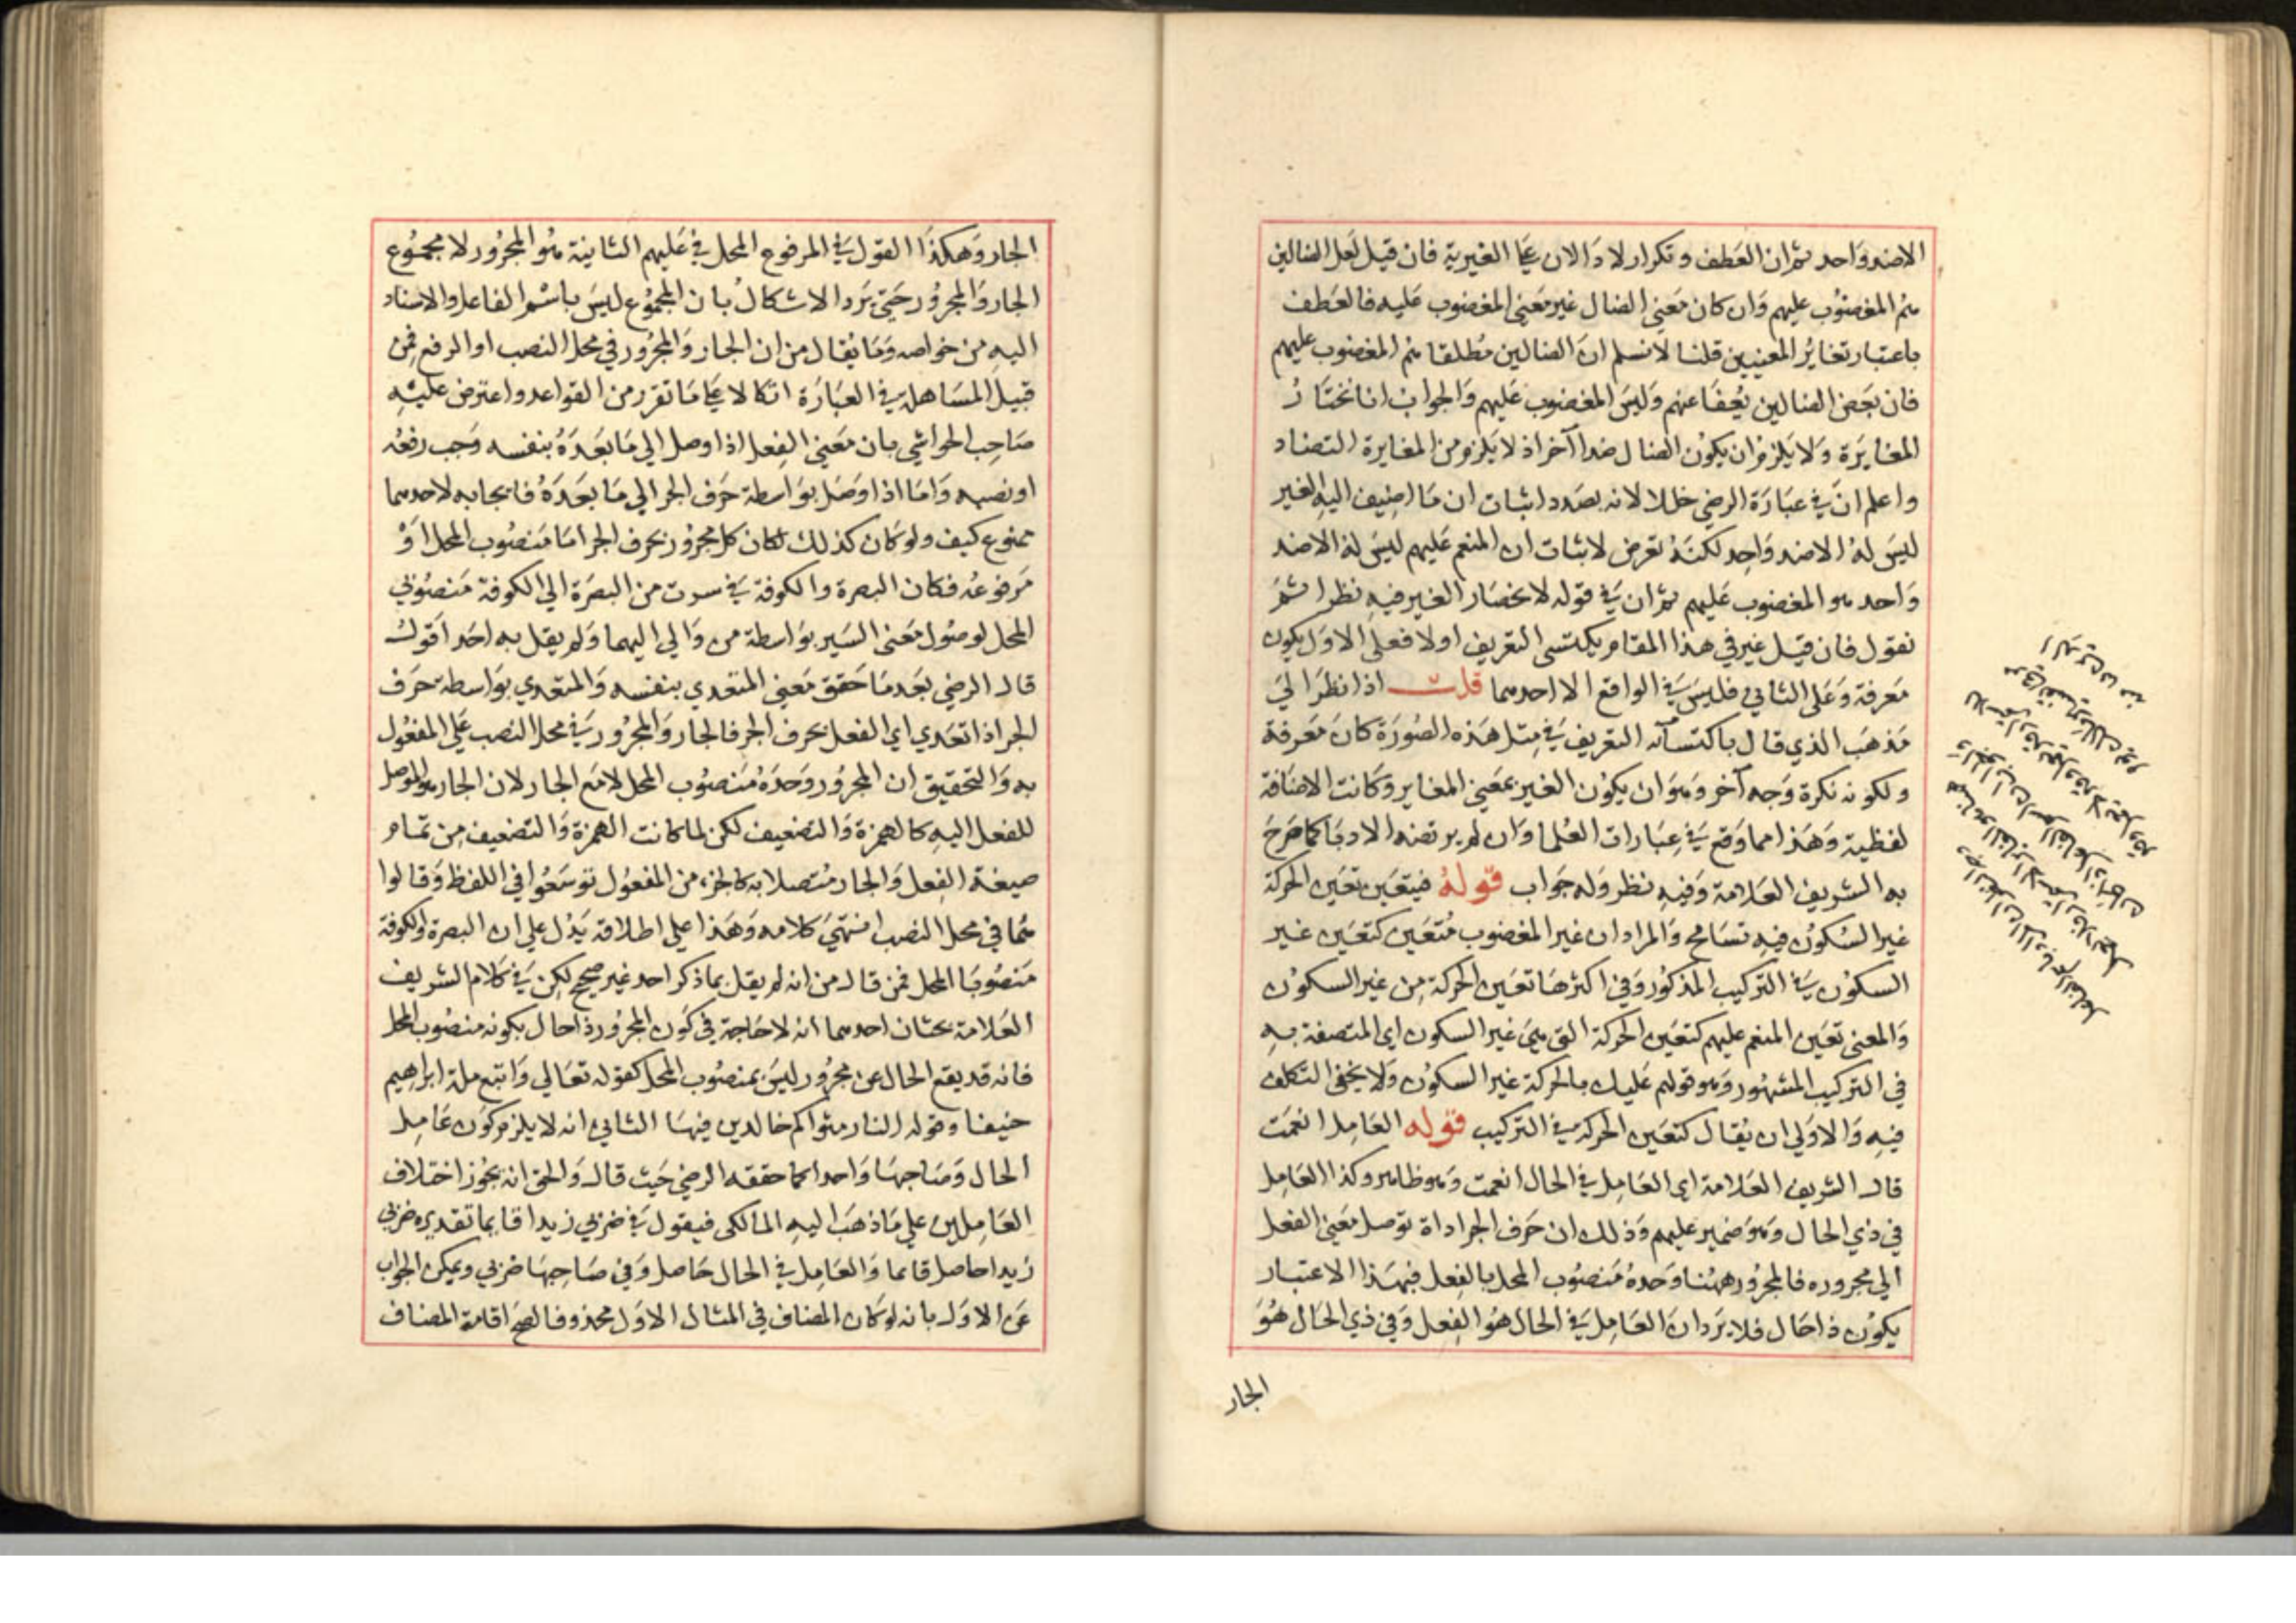 الاضد واحد ثم ان العطف وتكرار لا دالان علي الغيرية فان قيل لعل الضالين
هم المغضوب عليهم وان كان معني الضال غير معني المغضوب عليه فالعطف
باعتبار تغاير المعنيين قلنا لا نسلم ان الضالين مطلقا هم المغضوب عليهم
فان بعض الضالين يُعفا عنهم وليس المغضوب عليهم والجواب انا نختار
المغايرة ولا يلزم ان يكون الضال ضدا آخر اذ لا يلزم من المغايرة التضاد
واعلم ان في عبارة الرضي خللا لانه بصدد اثبات ان ما اضيف اليه الغير
ليس له الا ضد واحد لكنه تعرض لاثبات ان المنعم عليهم ليس له الا ضد
واحد هو المغضوب عليهم ثم ان في قوله لانحصار الغير فيه نظرا ثم
نقول فان قيل غير في هذا المقام يكتسي التعريف اولا فعلي الاول يكون
معرفة وعلي الثاني فليس في الواقع الا احدهما قلت اذا نظر الي
مذهب الذي قال باكتسآئه التعريف في مثل هذه الصورة كان معرفة
ولكونه نكرة وجه آخر وهو ان يكون الغير بمعني المغاير وكانت الاضافة
لفظية وهذا مما وقع في عبارات العلما وان لم يرتضه الادبا كما صرح
به الشريف العلامة وفيه نظر وله جواب قوله فيتعين تعين الحركة
غير السكون فيه تسامح والمراد ان غير المغضوب متعين كتعين غير
السكون في التركيب المذكور وفي اكثرها تعين الحركة من غير السكون
والمعني تعين المنعم عليهم كتعين الحركة التي هي غير السكون اي المتصفة به
في التركيب المشهور وهو قولهم عليك بالحركة غير السكون ولا يخفي التكلف
فيه والاولي ان يقال كتعين الحركة في التركيب قوله العامل انعمت
قال الشريف العلامة اي العامل في الحال انعمت وهو ظاهر وكذا العامل
في ذي الحال وهو ضمير عليهم وذلك ان حرف الجر اداة توصل معني الفعل
الي مجروره فالمجرور ههنا وحده منصوب المحل بالفعل فبهذا الاعتبار
يكون ذا حال فلا يرد ان العامل في الحال هو الفعل وفي ذي الحال هو
الجار
الجار وهكذا القول في المرفوع المحل في عليهم الثانية هو المجرور لا مجموع
الجار والمجرور حتي يرد الاشكال بان المجموع ليس باسم والفاعل والاسناد
اليه من خواصه وما يقال من ان الجار والمجرور في محل النصب او الرفع فمن
قبيل المساهلة في العبارة اتكالا علي ما تقرر من القواعد واعترض عليه
صاحب الحواشي بان معني الفعل اذا وصل الي ما بعده بنفسه وجب رفعه
او نصبه واما اذا وصل بواسطة حرف الجر الي ما بعده فايجابه لاحدهما
ممنوع كيف ولو كان كذلك لكان كل مجرور بحرف الجر اما منصوب المحل او
مرفوعه فكان البصرة والكوفة في سرت من البصرة الي الكوفة منصوبي
المحل لوصول معني السير بواسطة من والي اليهما ولم يقل به احد اقول
قال الرضي بعد ما حقق معني المتعدي بنفسه والمتعدي بواسطة حرف
الجر اذا تعدي اي الفعل بحرف الجر فالجار والمجرور في محل النصب علي المفعول
به والتحقيق ان المجرور وحده منصوب المحل لا مع الجار لان الجار هو الموصل
للفعل اليه كالهمزة والتضعيف لكن لما كانت الهمزة والتضعيف من تمام
صيغة الفعل والجار متصلا به كالجزء من المفعول توسعوا في اللفظ وقالوا
هما في محل النصب انتهي كلامه وهذا علي اطلاقه يدل علي ان البصرة والكوفة
منصوبا المحل فمن قال من انه لم يقل بما ذكر احد غير صحيح لكن في كلام الشريف
العلامة بحثان احدهما انه لا حاجة في كون المجرور ذا حال بكونه منصوب المحل
فانه قد يقع الحال عن مجرور ليس بمنصوب المحل كقوله تعالي واتبع ملة ابراهيم
حنيفا وقوله النار مثواكم خالدين فيها الثاني انه لا يلزم كون عامل
الحال وصاحبها واحدا كما حققه الرضي حيث قال والحق انه يجوز اختلاف
العاملين علي ما ذهب اليه المالكي فيقول في ضربي زيدا قايما تقديره ضربي
زيدا حاصل قائما والعامل في الحال حاصل وفي صاحبها ضربي ويمكن الجواب
عن الاول بانه لو كان المضاف في المثال الاول محذوفا لصح اقامة المضاف